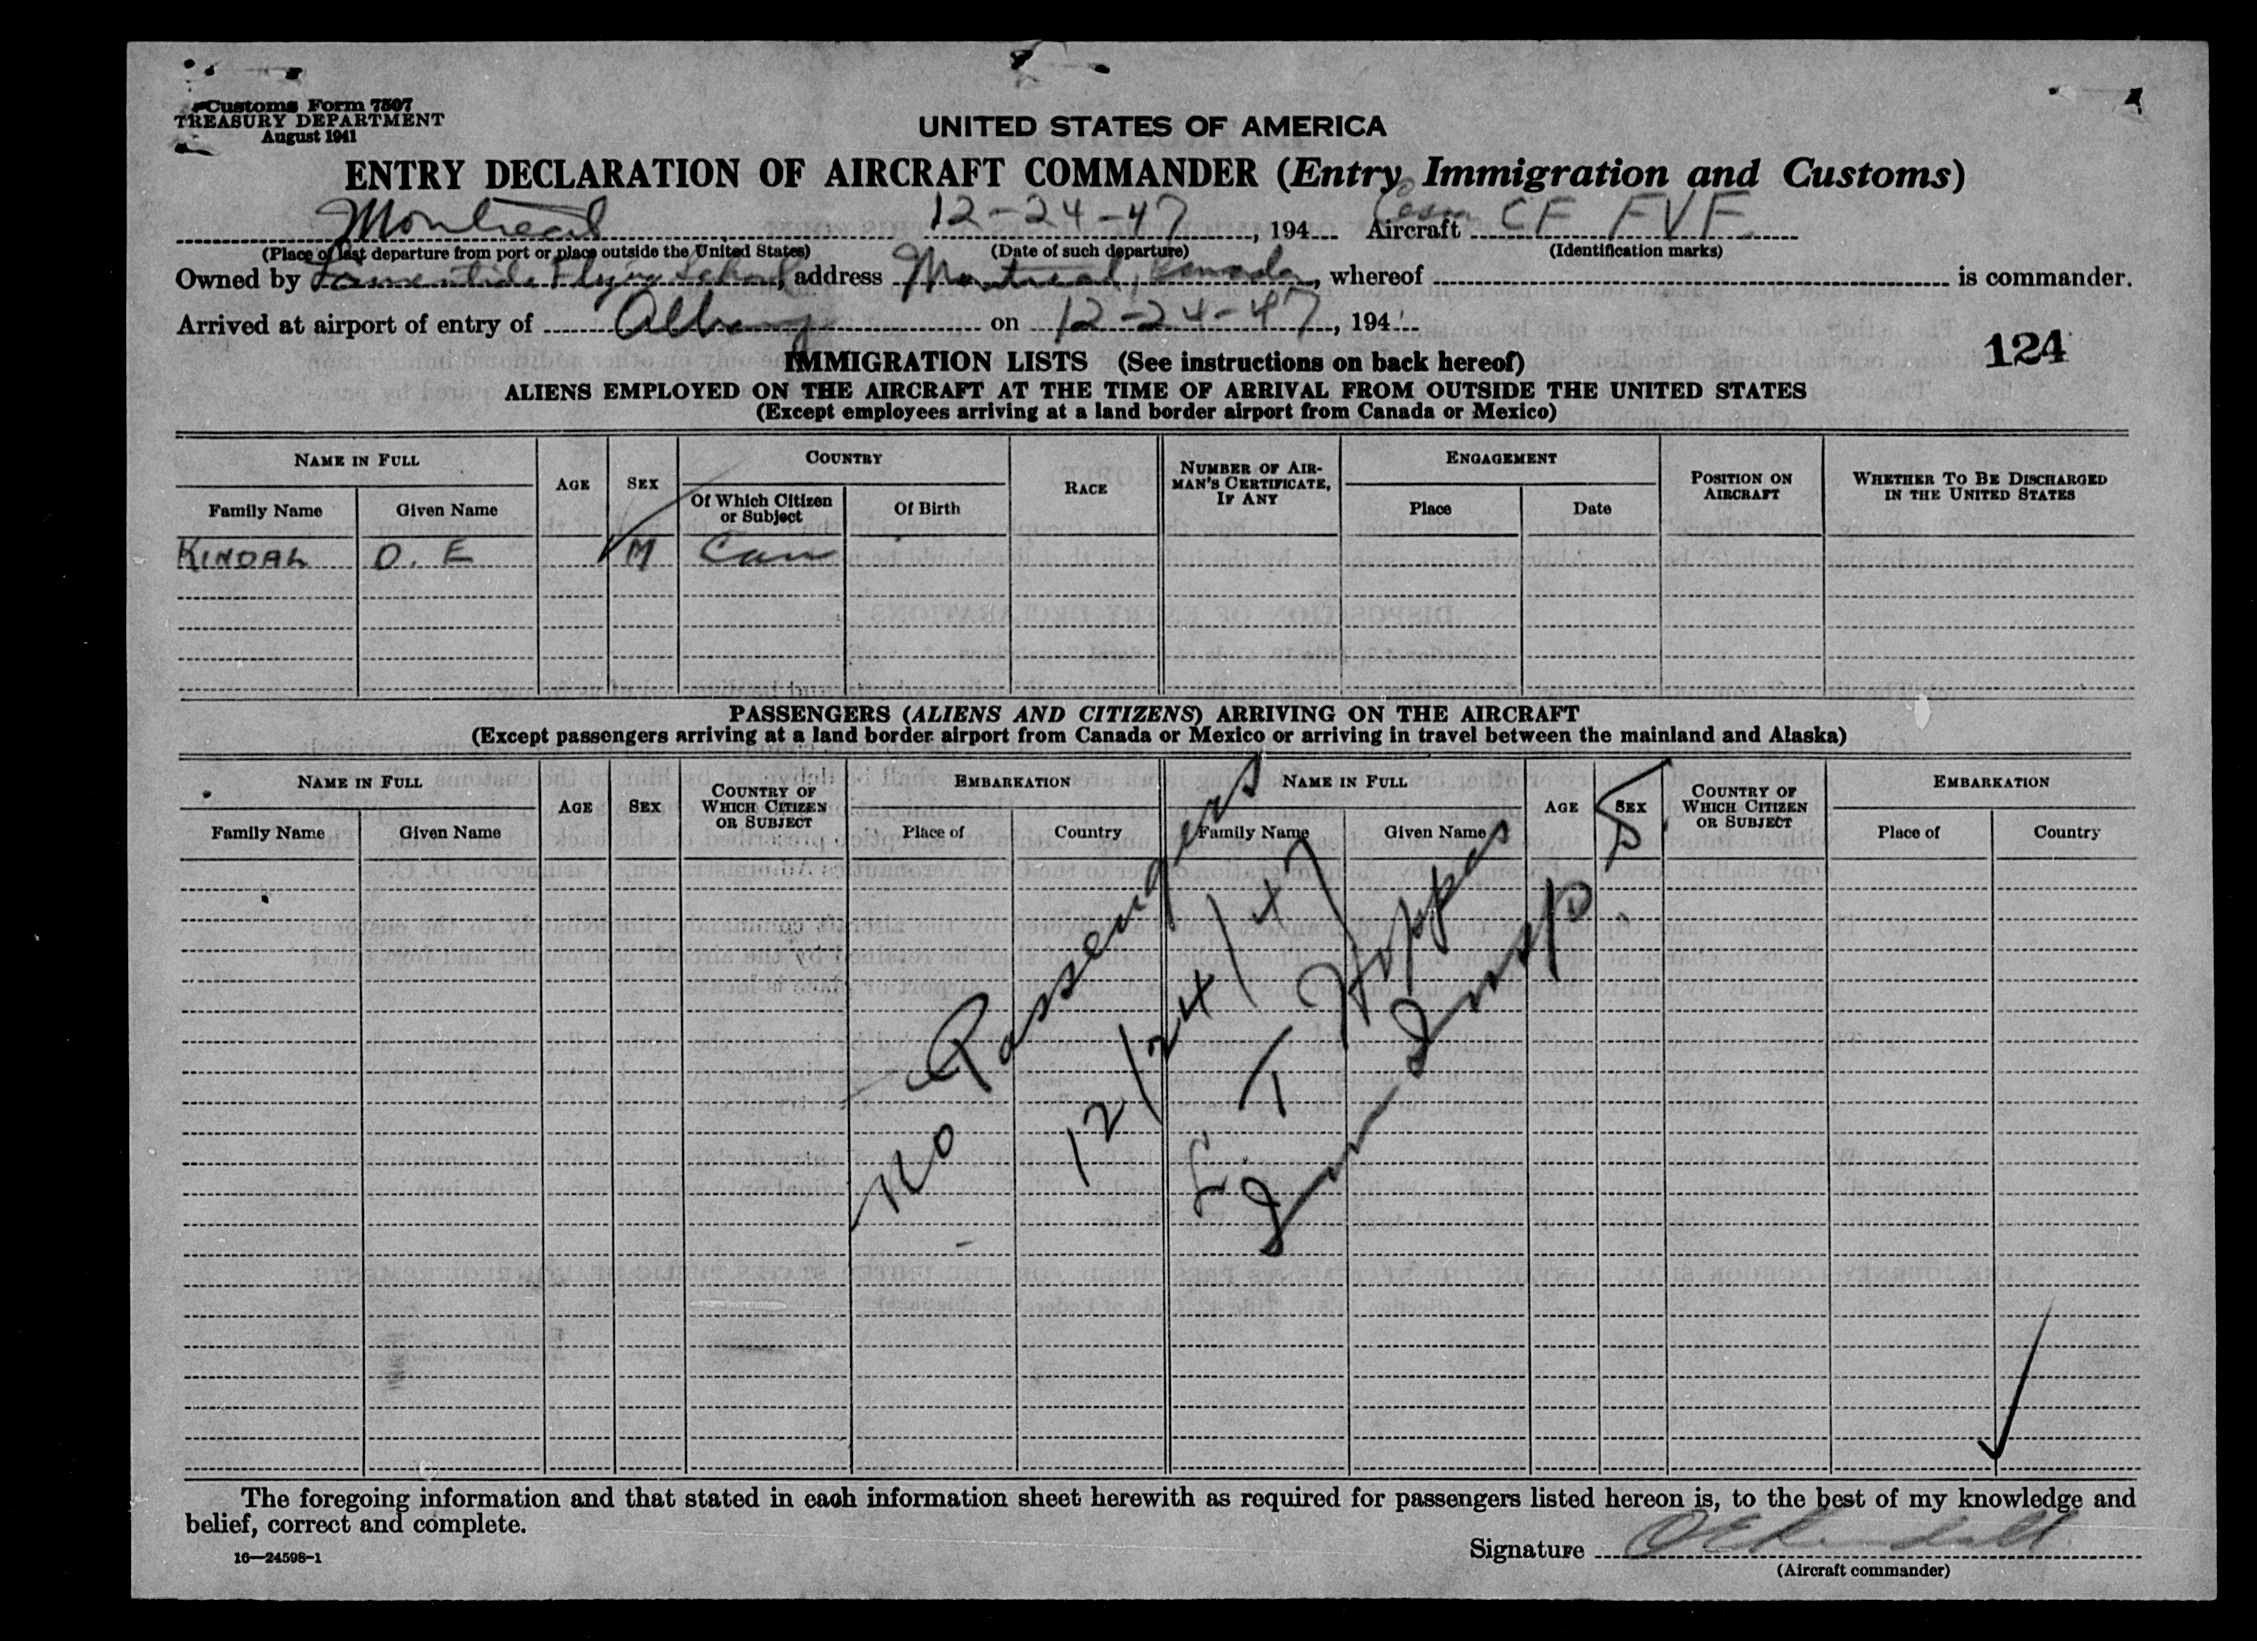 Customs Form 7507
TREASURY DEPARTMENT
August 1941
UNITED STATES OF AMERICA
ENTRY DECLARATION OF AIRCRAFT COMMANDER (Entry Immigration and Customs)
Montreal 12-24-47, 194 Aircraft CF FVF
(Place of last departure from port or place outside the United States) (Date of such departure) (Identification marks)
Owned by Laurentide Flying School, address Montreal, Kanada, whereof is commander.
Arrived at airport of entry of Albany on 12-24-47, 194
124
IMMIGRATION LISTS (See instructions on back hereof)
ALIENS EMPLOYED ON THE AIRCRAFT AT THE TIME OF ARRIVAL FROM OUTSIDE THE UNITED STATES
(Except employees arriving at a land border airport from Canada or Mexico)
NAME IN FULL AGE SEX COUNTRY RACE NUMBER OF AIRMAN'S CERTIFICATE, IF ANY ENGAGEMENT POSITION ON AIRCRAFT WHETHER TO BE DISCHARGED IN THE UNITED STATES
Family Name Given Name Of Which Citizen or Subject Of Birth Place Date
KINDAL O. E M Can
PASSENGERS (ALIENS AND CITIZENS) ARRIVING ON THE AIRCRAFT
(Except passengers arriving at a land border airport from Canada or Mexico or arriving in travel between the mainland and Alaska)
NAME IN FULL AGE SEX COUNTRY OF WHICH CITIZEN OR SUBJECT EMBARKATION NAME IN FULL AGE SEX COUNTRY OF WHICH CITIZEN OR SUBJECT EMBARKATION
Family Name Given Name Place of Country Family Name Given Name Place of Country
No Passengers
12/24/47
T Hoppas
Imm Insp.
The foregoing information and that stated in each information sheet herewith as required for passengers listed hereon is, to the best of my knowledge and
belief, correct and complete.
16—24598-1
Signature O E Kendall
(Aircraft commander)